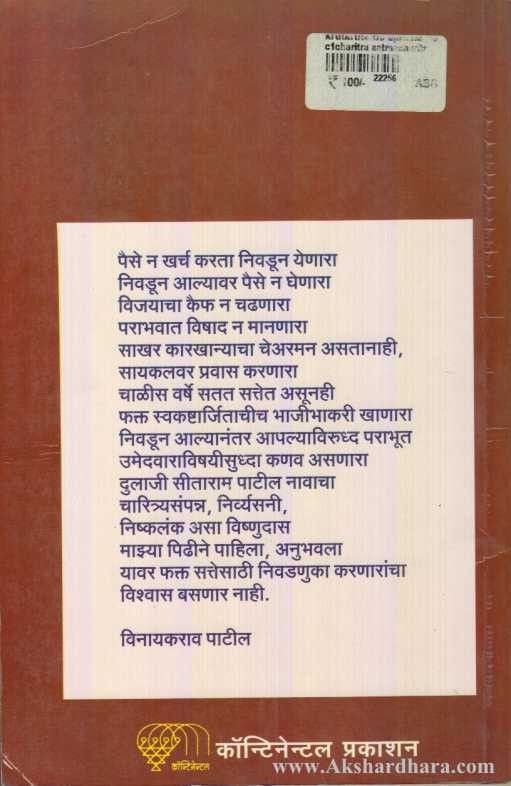 c1charitra
₹ 100/- 22256
पैसे न खर्च करता निवडून येणारा
निवडून आल्यावर पैसे न घेणारा
विजयाचा कैफ न चढणारा
पराभवात विषाद न मानणारा
साखर कारखान्याचा चेअरमन असतानाही,
सायकलवर प्रवास करणारा
चाळीस वर्षे सतत सत्तेत असूनही
फक्त स्वकष्टार्जिताचीच भाजीभाकरी खाणारा
निवडून आल्यानंतर आपल्याविरुध्द पराभूत
उमेदवाराविषयीसुध्दा कणव असणारा
दुलाजी सीताराम पाटील नावाचा
चारित्र्यसंपन्न, निर्व्यसनी,
निष्कलंक असा विष्णुदास
माझ्या पिढीने पाहिला, अनुभवला
यावर फक्त सत्तेसाठी निवडणुका करणारांचा
विश्वास बसणार नाही.
विनायकराव पाटील
कॉन्टिनेन्टल
कॉन्टिनेन्टल प्रकाशन
www.Akshardhara.com